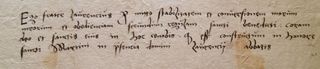 Ego frater laurencius p̄mitto stabilitatem et conversionem morum
meorum et obedienciam secundum regulam sancti benedicti coram
deo et sanctis eius in hoc q̄ est constructum in honore
sancti in p̄sencia domini laurencii abbatis